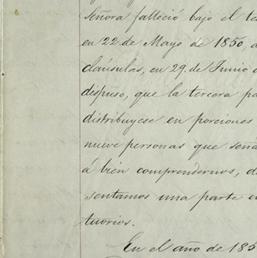 señora falleció bajo el te
en 22 de Mayo de 1850, a
cláusulas, en 29 de Junio
dispuso, que la tercera pa
distribuyese en porciones
nueve personas que seña
á bien comprendernos, d
sentamos una parte e
tuorios.
En el año de 185